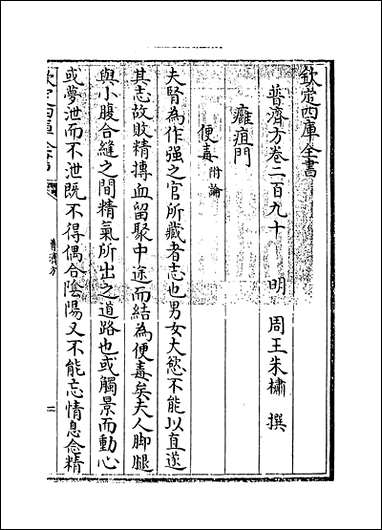 欽定四庫全書
普濟方卷二百九十　明　周王朱橚　撰
癰疽門
便毒附論
夫腎為作强之官所藏者志也男女大慾不能以直遂
其志故敗精搏血留聚中途而結為便毒矣夫人脚腿
與小腹合縫之間精氣所出之道路也或觸景而動心
或夢泄而不泄既不得偶合陰陽又不能忘情息念精
欽定四庫全書
普濟方